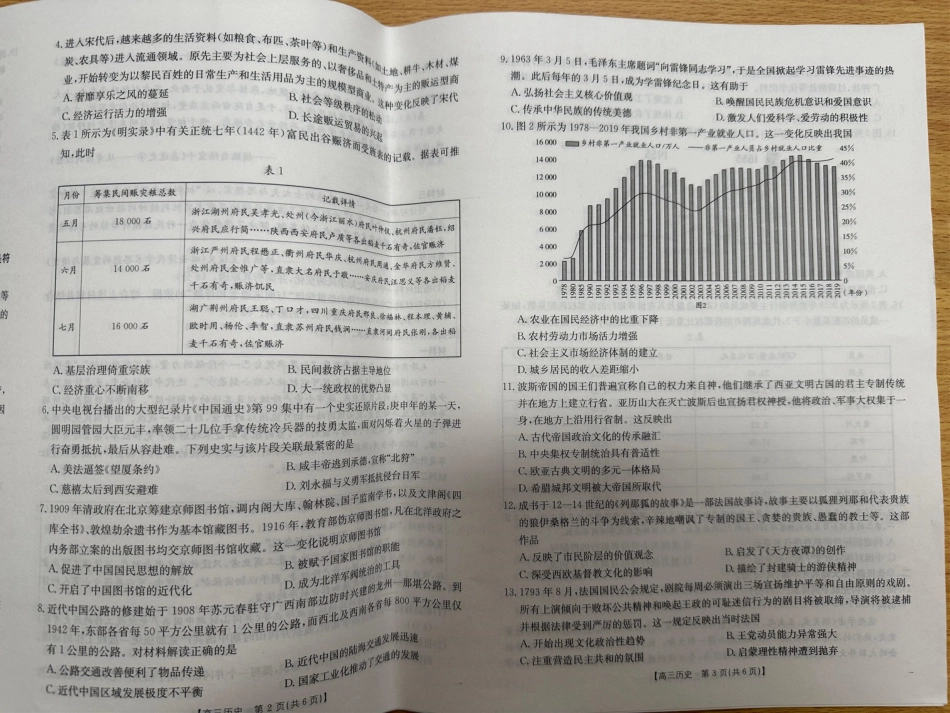 4.进入宋代后,越来越多的生活资料(如粮食、布匹、茶叶等)和生产资料(如土地、耕牛、木材、煤
炭、农具等)进入流通领域。原先主要为社会上层服务的、以奢侈品和土特产为主的贩运型商
业,开始转变为以黎民百姓的日常生产和生活用品为主的规模型商业,这种变化反映了宋代
A.奢靡享乐之风的蔓延 B.社会等级秩序的松动
C.经济运行活力的增强 D.长途贩运贸易的兴起
5.表1所示为《明实录》中有关正统七年(1442年)富民出谷赈济而受旌表的记载。据表可推
知,此时
表1
月份 筹集民间赈灾粮总数 记载详情
五月 18 000石 浙江湖州府民吴孝光、处州(今浙江丽水)府民叶仲仪、杭州府民潘钰,绍
兴府民应行简……陕西西安府民卢质等各出稻麦千石有奇,佐官赈济
六月 14 000石 浙江严州府民程懋正、衢州府民华庆、杭州府民周通、金华府民方维贤、
处州府民金惟广等,直隶大名府民于敬……安庆府民汪思义等各出稻麦
千石有奇,赈济饥民
七月 16 000石 湖广荆州府民王聪、丁口才,四川重庆府民鄢良、徐福林、程本理、黄城、
欧时用、杨伦、李智,直隶苏州府民钱渊……直隶河间府民张刚,各出稻
麦千石有奇,佐官赈济
A.基层治理倚重宗族 B.民间救济占据主导地位
C.经济重心不断南移 D.大一统政权的优势凸显
6.中央电视台播出的大型纪录片《中国通史》第99集中有一个史实还原片段:庚申年的某一天,
圆明园管园大臣元丰,率领二十几位手拿传统冷兵器的技勇太监,面对闪烁着火星的子弹进
行奋勇抵抗,最后从容赴难。下列史实与该片段关联最紧密的是
A.美法逼签《望厦条约》 B.咸丰帝逃到承德,宣称“北狩”
C.慈禧太后到西安避难 D.刘永福与义勇军抵抗侵台日军
7.1909年清政府在北京筹建京师图书馆,调内阁大库、翰林院、国子监南学书,以及文津阁《四
库全书》、敦煌劫余遗书作为基本馆藏图书。1916年,教育部饬京师图书馆,凡在北洋政府之
内务部立案的出版图书均交京师图书馆收藏。这一变化说明京师图书馆
A.促进了中国国民思想的解放 B.被赋予国家图书馆的职能
C.开启了中国图书馆的近代化 D.成为北洋军阀统治的工具
8.近代中国公路的修建始于1908年苏元春驻守广西南部边防时兴建的龙州—那堪公路。到
1942年,东部各省每50平方公里就有1公里的公路,而西北及西南各省每800平方公里仅
有1公里的公路。对材料解读正确的是
A.公路交通改善便利了物品传递 B.近代中国的陆海交通发展迅速
C.近代中国区域发展极度不平衡 D.国家工业化推动了交通的发展
【高三历史 第2页(共6页)】
9.1963年3月5日,毛泽东主席题词“向雷锋同志学习”,于是全国掀起学习雷锋先进事迹的热
潮。此后每年的3月5日,成为学雷锋纪念日。这有助于
A.弘扬社会主义核心价值观 B.唤醒国民民族危机意识和爱国意识
C.传承中华民族的传统美德 D.激发人们爱科学、爱劳动的积极性
10.图2所示为1978—2019年我国乡村非第一产业就业人口。这一变化反映出我国
乡村非第一产业就业人口/万人 非第一产业人员占乡村就业人口比重
16 000 45%
14 000 40%
12 000 35%
10 000 30%
8 000 25%
6 000 20%
4 000 15%
2 000 10%
5%
0 0
1978 1980 1985 1989 1990 1991 1992 1993 1994 1995 1996 1997 1998 1999 2000 2001 2002 2003 2004 2005 2006 2007 2008 2009 2010 2011 2012 2013 2014 2015 2016 2017 2018 2019 (年份)
图2
A.农业在国民经济中的比重下降
B.农村劳动力市场活力增强
C.社会主义市场经济体制的建立
D.城乡居民的收入差距缩小
11.波斯帝国的国王们普遍宣称自己的权力来自神,他们继承了西亚文明古国的君主专制传统
并在地方上建立行省。亚历山大在灭亡波斯后也宣扬君权神授,他将政治、军事大权集于一
身,在地方上沿用行省制。这反映出
A.古代帝国政治文化的传承融汇
B.中央集权专制统治具有普适性
C.欧亚古典文明的多元一体格局
D.希腊城邦文明被大帝国所取代
12.成书于12—14世纪的《列那狐的故事》是一部法国故事诗,故事主要以狐狸列那和代表贵族
的狼伊桑格兰的斗争为线索,辛辣地嘲讽了专制的国王、贪婪的贵族、愚蠢的教士等。这部
作品
A.反映了市民阶层的价值观念 B.启发了《天方夜谭》的创作
C.深受西欧基督教文化的影响 D.描绘了封建骑士的游侠精神
13.1793年8月,法国国民公会规定,剧院每周必须演出三场宣扬维护平等和自由原则的戏剧。
所有上演倾向于败坏公共精神和唤起王政的可耻迷信行为的剧目将被取缔,导演将被逮捕
并根据法律受到严厉的惩罚。这一规定反映出当时法国
A.开始出现文化政治性趋势 B.王党动员能力异常强大
C.注重营造民主共和的氛围 D.启蒙理性精神遭到抛弃
【高三历史 第3页(共6页)】